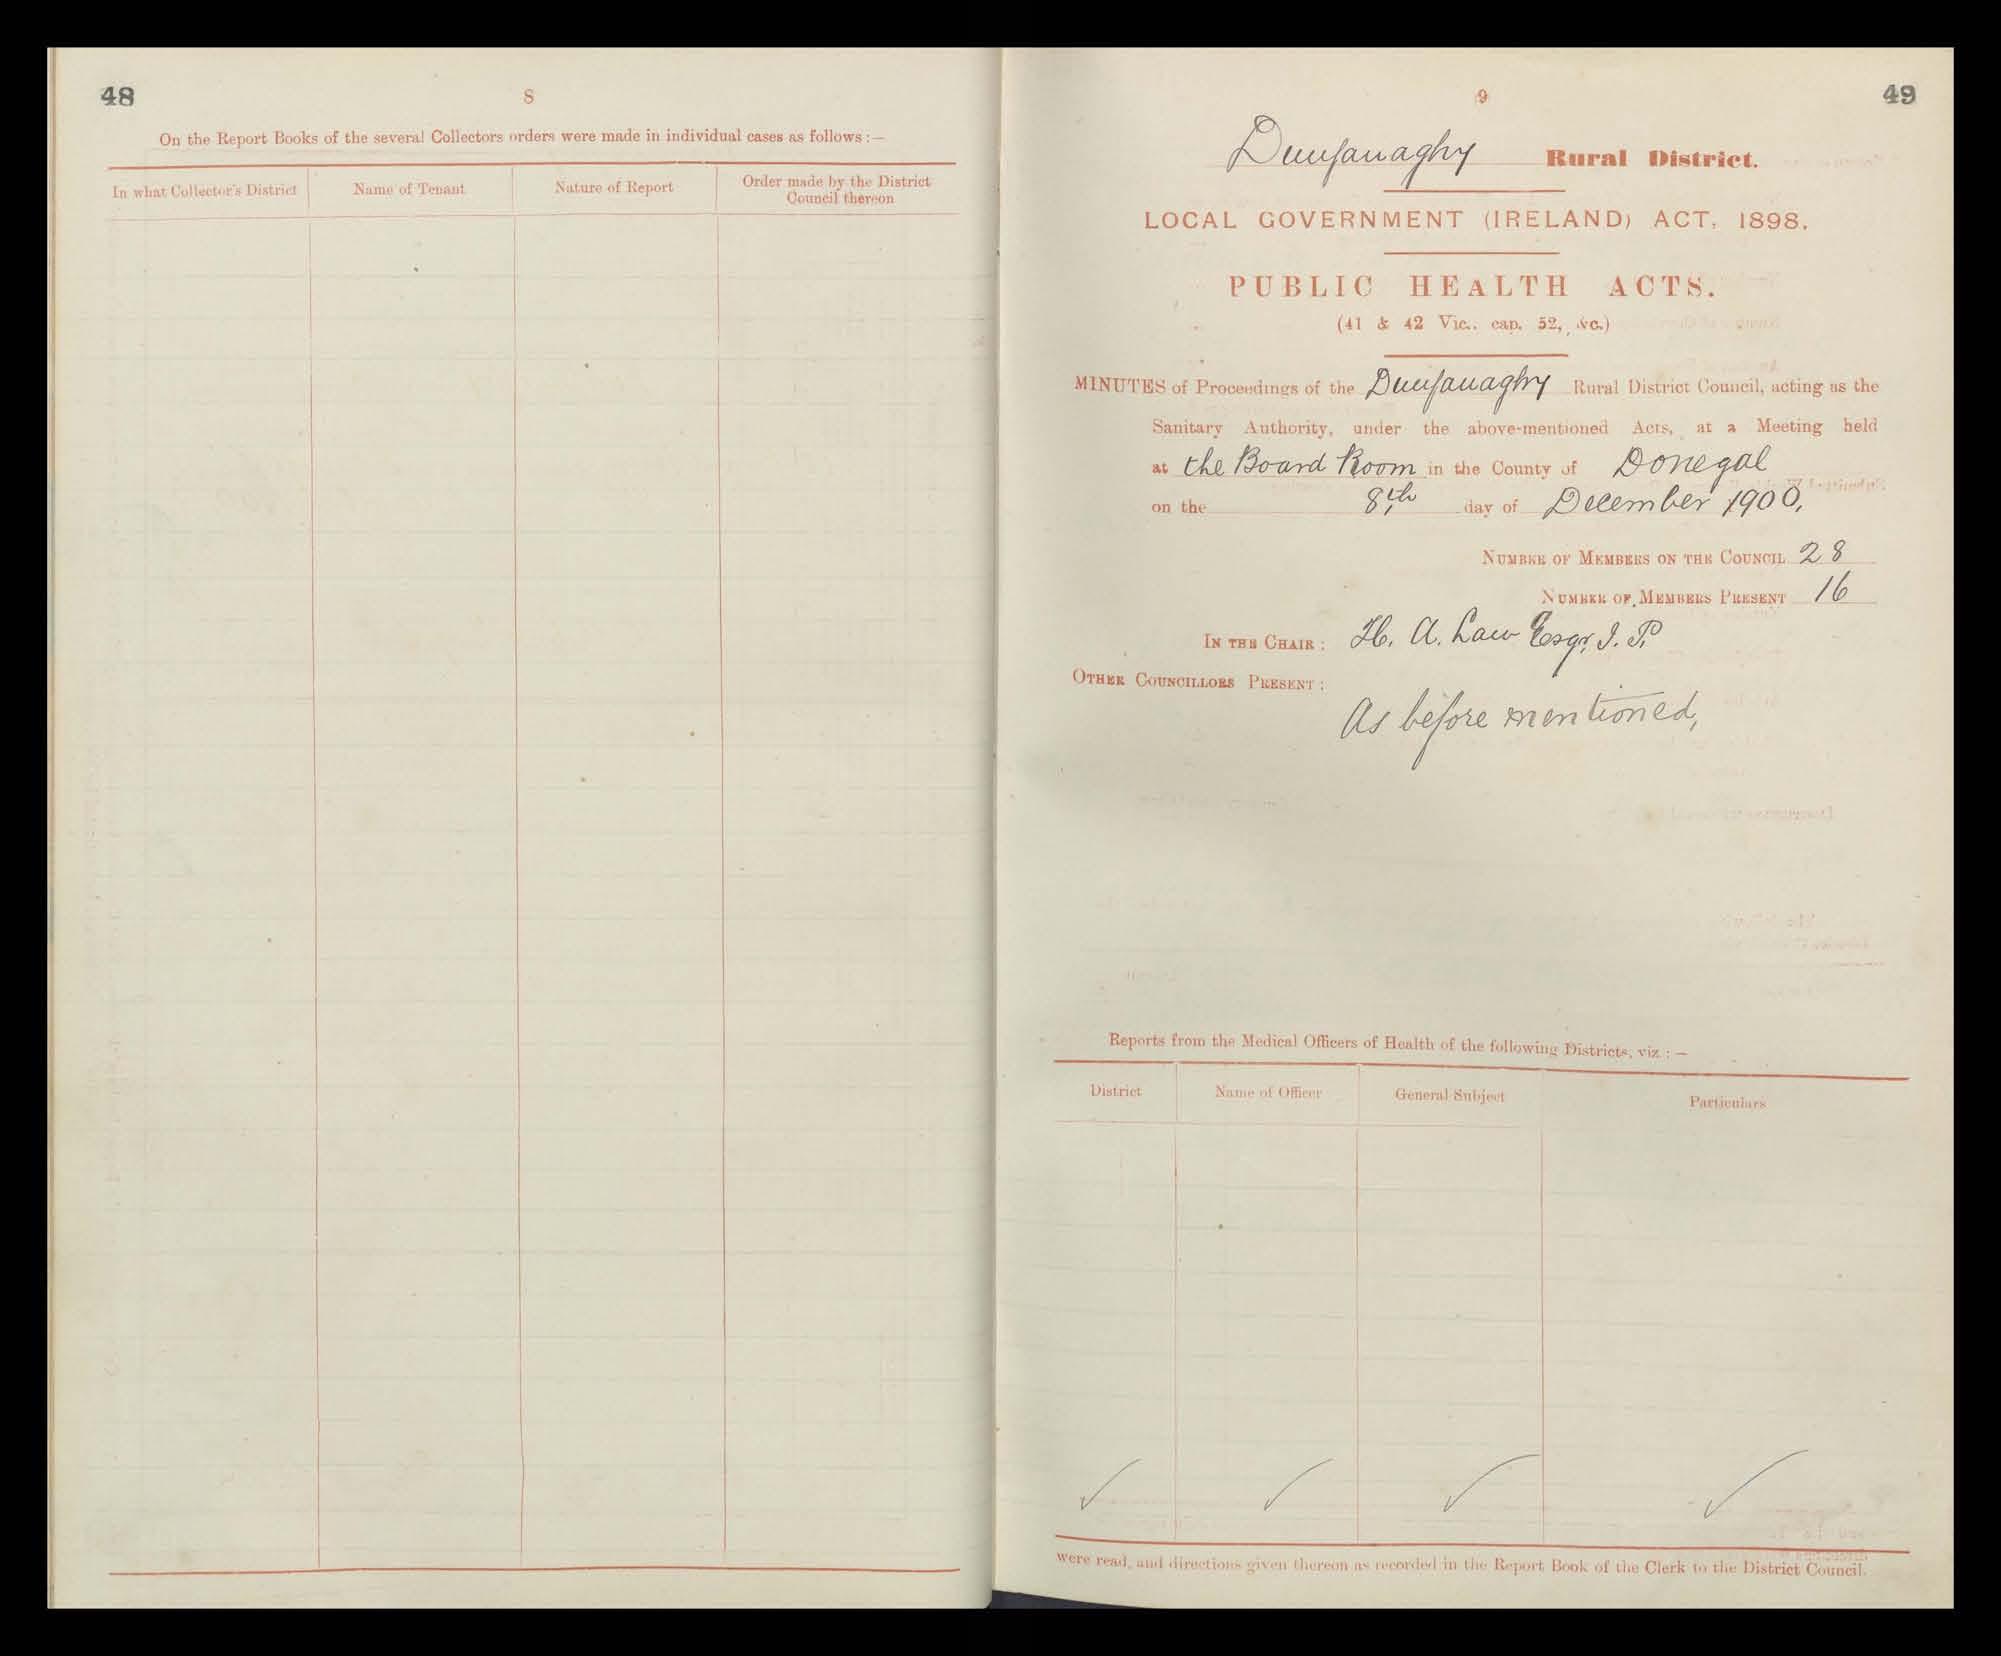 48
8
On the Report Books of the several Collectors orders were made in individual cases as follows :—
In what Collector's District
Name of Tenant
Nature of Report
Order made by the District
Council thereon
49
9
Dunfanaghy Rural District.
LOCAL GOVERNMENT (IRELAND) ACT, 1898.
PUBLIC HEALTH ACTS.
(41 & 42 Vic., cap. 52, &c.)
MINUTES of Proceedings of the Dunfanaghy Rural District Council, acting as the
Sanitary Authority, under the above-mentioned Acts, at a Meeting held
at the Board Room in the County of Donegal
on the 8th day of December 1900,
NUMBER OF MEMBERS ON THE COUNCIL 28
NUMBER OF MEMBERS PRESENT 16
IN THE CHAIR : H. A. Law Esqr, J. P.
OTHER COUNCILLORS PRESENT :
As before mentioned,
Reports from the Medical Officers of Health of the following Districts, viz. :—
District
Name of Officer
General Subject
Particulars
were read, and directions given thereon as recorded in the Report Book of the Clerk to the District Council.